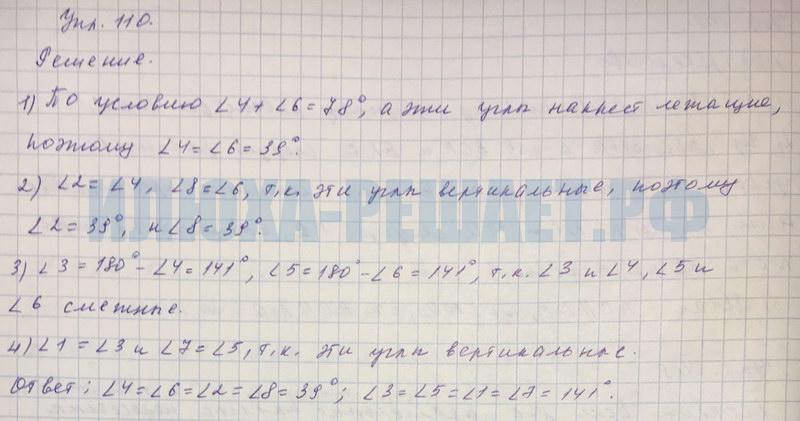 Упр. 110.
Решение.
1) По условию ∠4 + ∠6 = 78°, а эти углы накрест лежащие,
поэтому ∠4 = ∠6 = 39°.
2) ∠2 = ∠4, ∠8 = ∠6, т.к. эти углы вертикальные, поэтому
∠2 = 39°, и ∠8 = 39°.
ИЛЮХА-РЕШАЕТ.РФ
3) ∠3 = 180° - ∠4 = 141°, ∠5 = 180° - ∠6 = 141°, т.к. ∠3 и ∠4, ∠5 и
∠6 смежные.
4) ∠1 = ∠3 и ∠7 = ∠5, т.к. эти углы вертикальные.
Ответ: ∠4 = ∠6 = ∠2 = ∠8 = 39°; ∠3 = ∠5 = ∠1 = ∠7 = 141°.